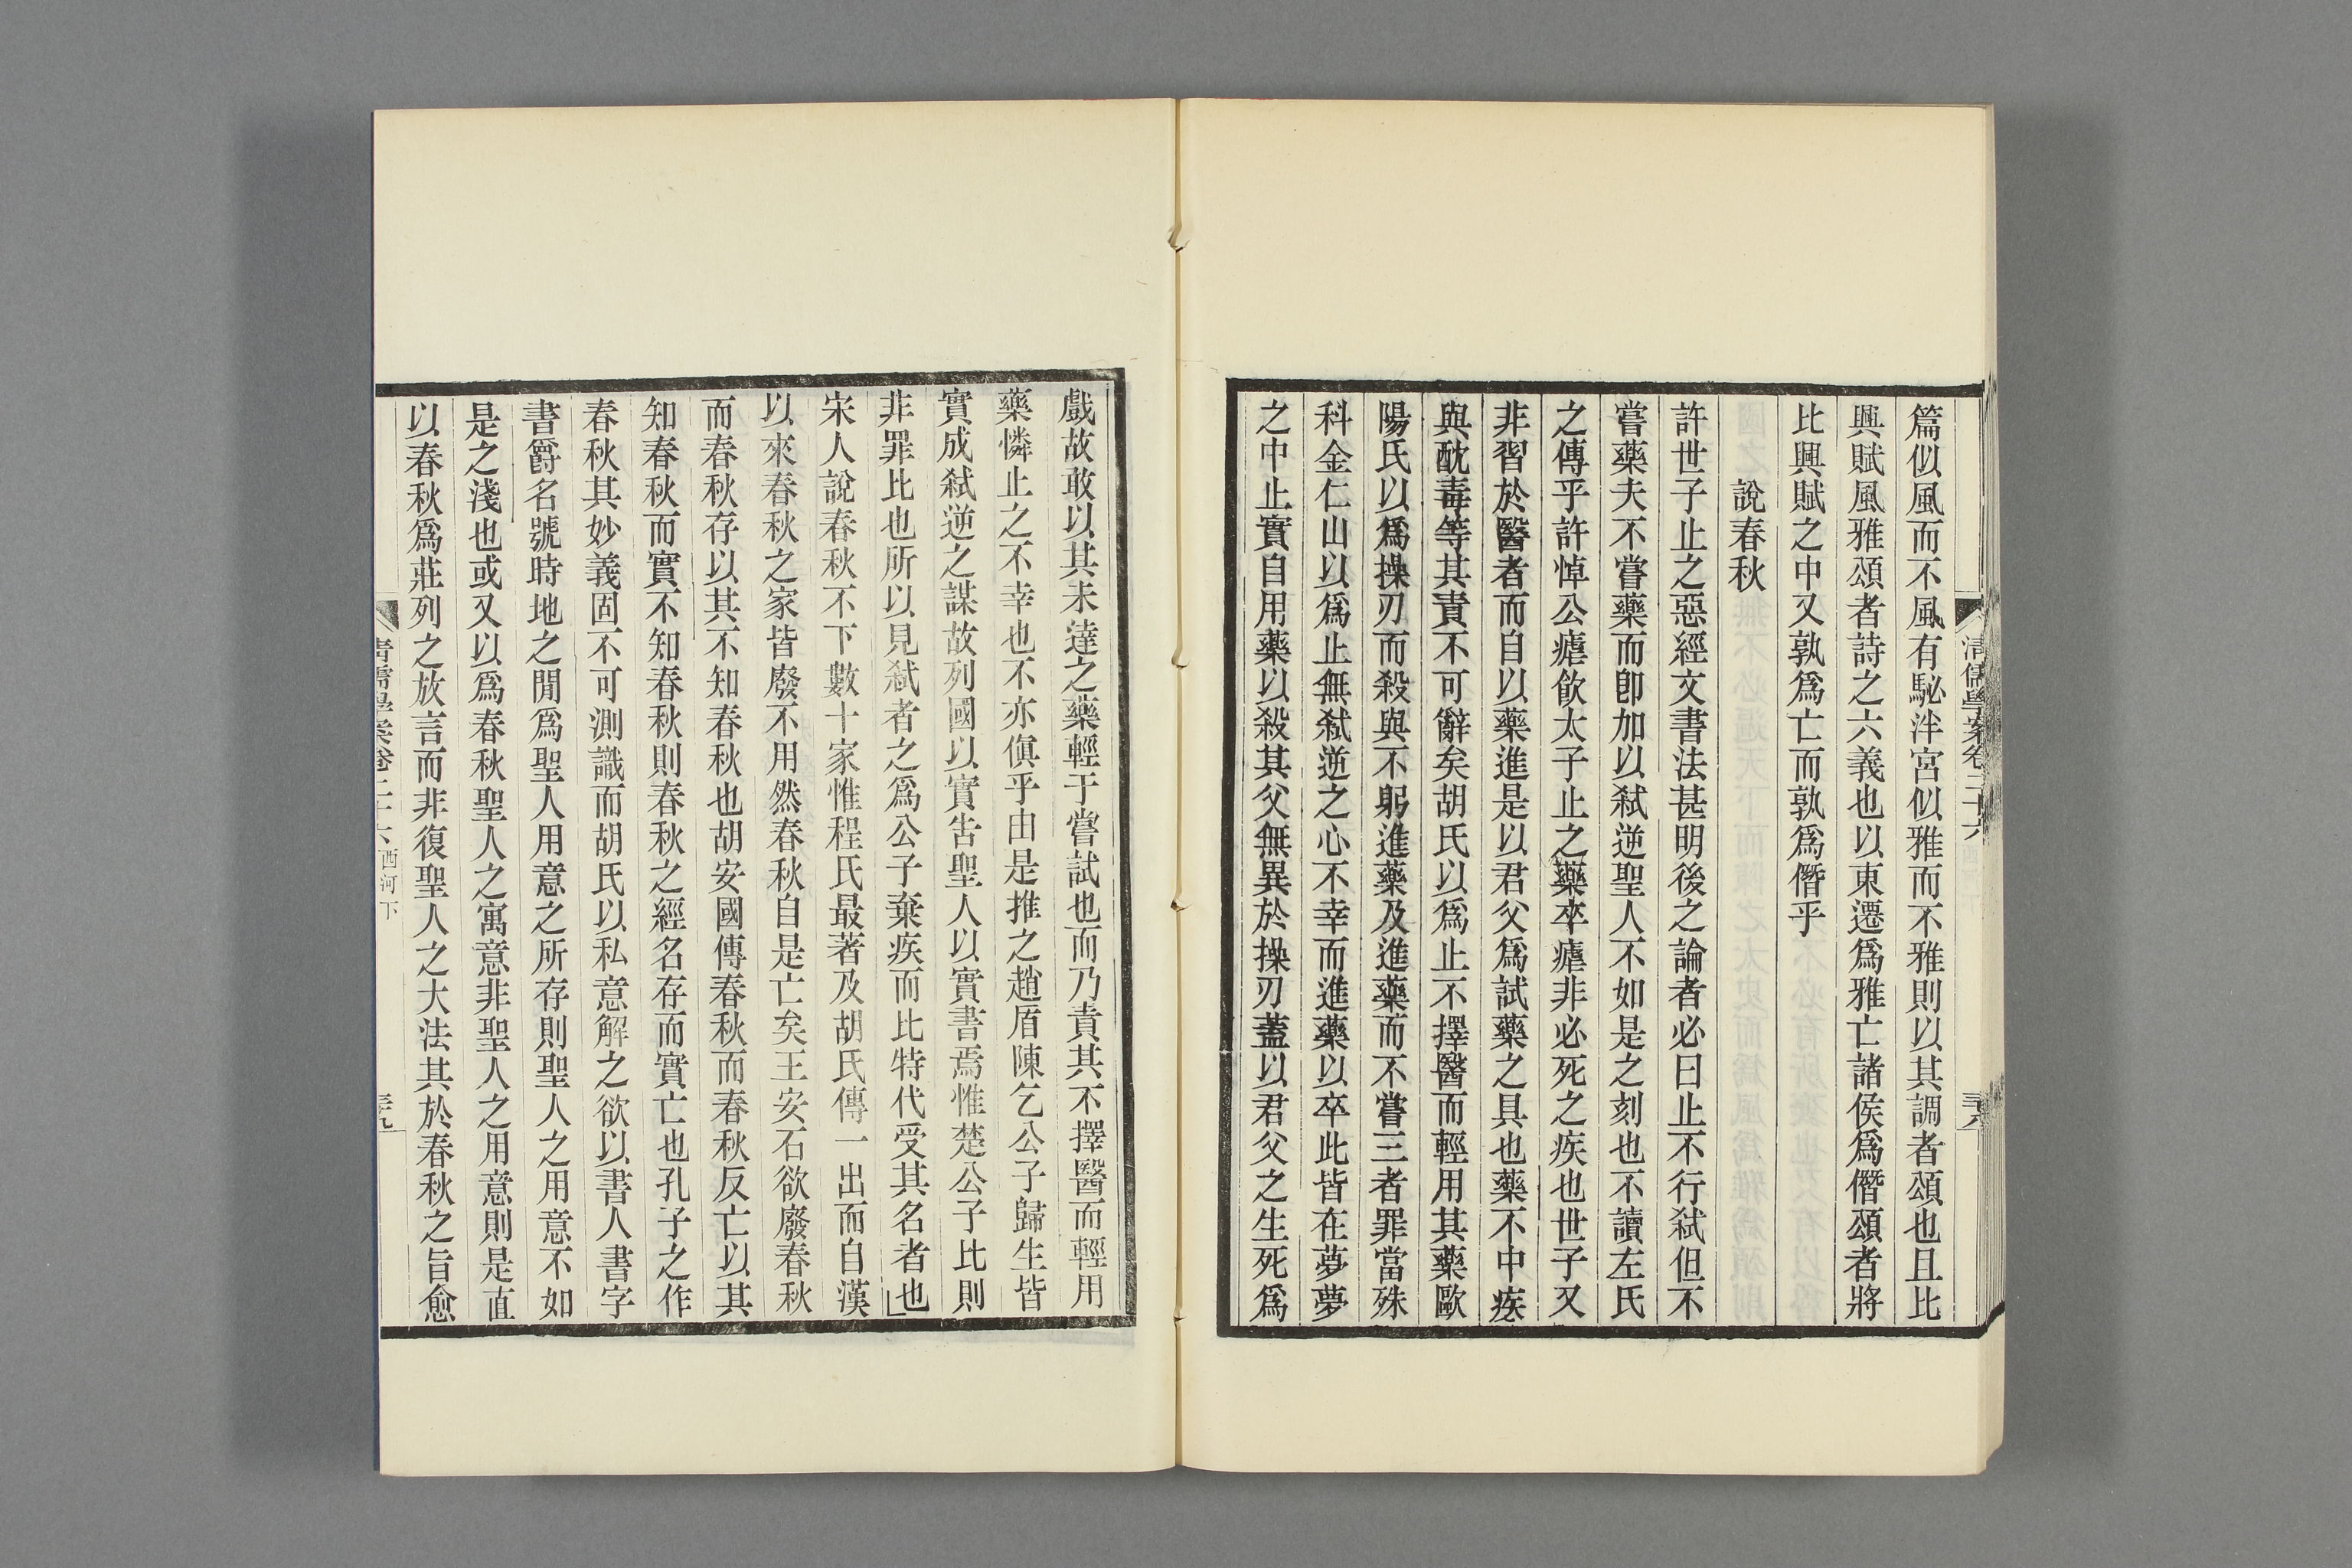 清儒學案卷二十六
三十八
篇似風而不風有駜泮宮似雅而不雅則以其調者頌也且比
興賦風雅頌者詩之六義也以東遷爲雅亡諸侯爲僭頌者將
比興賦之中又孰爲亡而孰爲僭乎
說春秋
許世子止之惡經文書法甚明後之論者必曰止不行弒但不
嘗藥夫不嘗藥而卽加以弒逆聖人不如是之刻也不讀左氏
之傳乎許悼公瘧飲太子止之藥卒瘧非必死之疾也世子又
非習於醫者而自以藥進是以君父爲試藥之具也藥不中疾
與酖毒等其責不可辭矣胡氏以爲止不擇醫而輕用其藥歐
陽氏以爲操刃而殺與不躬進藥及進藥而不嘗三者罪當殊
科金仁山以爲止無弒逆之心不幸而進藥以卒此皆在夢夢
之中止實自用藥以殺其父無異於操刃蓋以君父之生死爲
戲故敢以其未達之藥輕于嘗試也而乃責其不擇醫而輕用
藥憐止之不幸也不亦傎乎由是推之趙盾陳乞公子歸生皆
實成弒逆之謀故列國以實告聖人以實書焉惟楚公子比則
非罪比也所以見弒者之爲公子棄疾而比特代受其名者也
宋人說春秋不下數十家惟程氏最著及胡氏傳一出而自漢
以來春秋之家皆廢不用然春秋自是亡矣王安石欲廢春秋
而春秋存以其不知春秋也胡安國傳春秋而春秋反亡以其
知春秋而實不知春秋則春秋之經名存而實亡也孔子之作
春秋其妙義固不可測識而胡氏以私意解之欲以書人書字
書爵名號時地之閒爲聖人用意之所存則聖人之用意不如
是之淺也或又以爲春秋聖人之寓意非聖人之用意則是直
以春秋爲莊列之放言而非復聖人之大法其於春秋之旨愈
清儒學案卷二十六 西河下
三十九